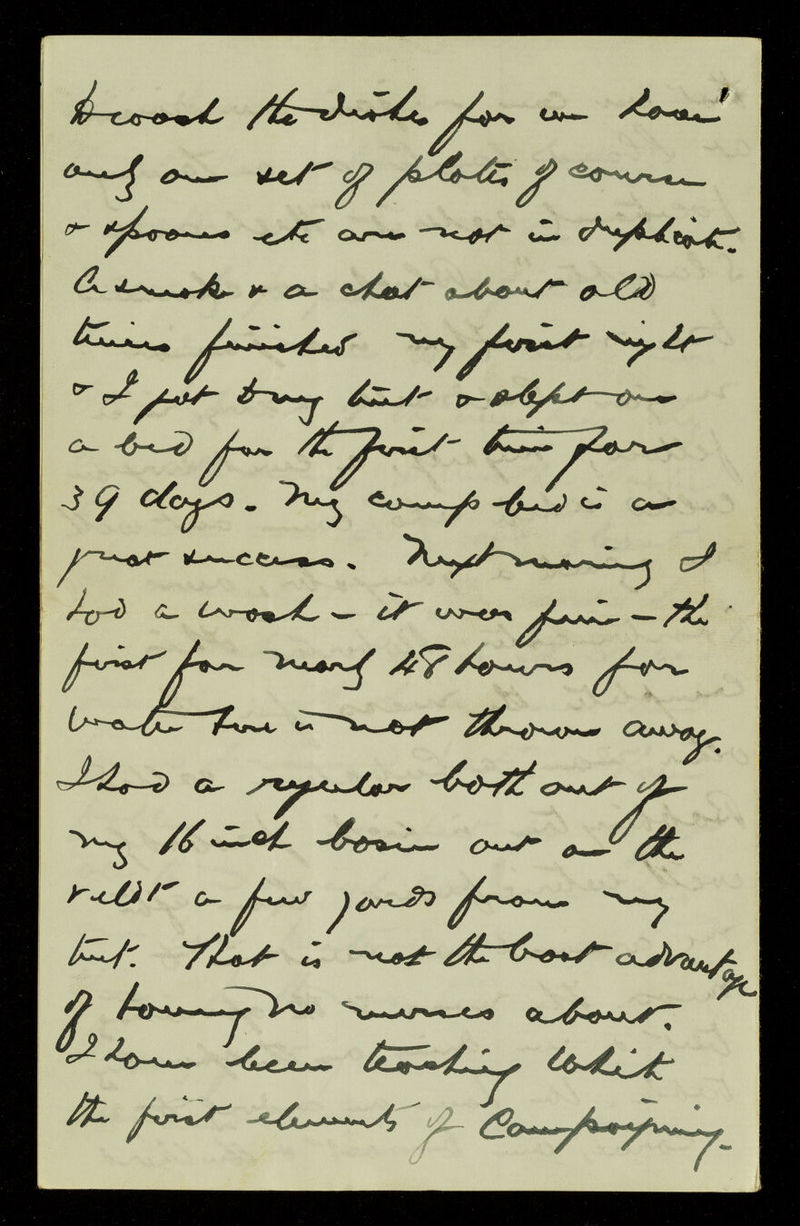 to wash the dishes for we have
only one set of plates of course
& spoons etc are not in duplicate.
A smoke & a chat about old
times finished my first night
& I got to my tent & slept on
a bed for the first time for
39 days. My camp bed is a
great success. Next morning I
had a wash – it was fine – the
first for nearly 48 hours for
water here is not thrown away.
I had a regular bath out of
my 16 inch basin out on the
veldt a few yards from my
tent. That is not the least advantage
of having no nurses about.
I have been teaching White
the first elements of Campaigning.